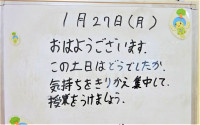 1月27日(月)
おはようございます。
この土日はどうでしたか。
気持ちをきりかえ集中して、
授業をうけましょう。